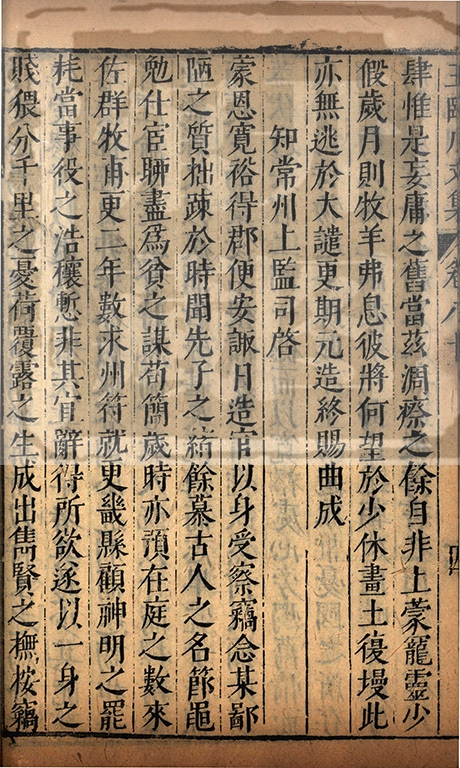 王臨川文集 卷八十
肆惟是妄庸之舊當茲凋瘵之餘自非上蒙寵靈少
假歲月則牧羊弗息彼將何望於少休畫土復墁此
亦無逃於大譴更期元造終賜曲成
知常州上監司啓
蒙恩寬裕得郡便安諏日造官以身受察竊念某鄙
陋之質拙疎於時聞先子之緒餘慕古人之名節黽
勉仕宦聊盡爲貧之謀苟簡歲時亦預在庭之數來
佐群牧甫更二年數求州符就更畿縣顧神明之罷
耗當事役之浩穰慙非其宜辭得所欲遂以一身之
賤猥分千里之憂荷覆露之生成出雋賢之撫按竊